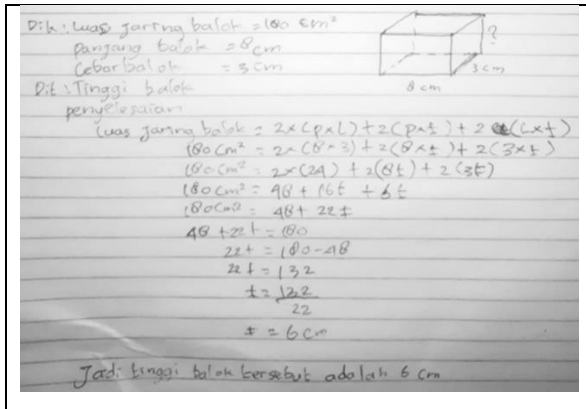 Dik : Luas jaring balok = 180 cm²
panjang balok = 8 cm
Lebar balok = 3 cm
Dit : Tinggi balok
penyelesaian
Luas jaring balok = 2 x (p x l) + 2 (p x t) + 2 (l x t)
180 cm² = 2 x (8 x 3) + 2 (8 x t) + 2 (3 x t)
180 cm² = 2 x (24) + 2 (8t) + 2 (3t)
180 cm² = 48 + 16t + 6t
180 cm² = 48 + 22 t
48 + 22 t = 180
22 t = 180 - 48
22 t = 132
t = 132
22
t = 6 cm
Jadi tinggi balok tersebut adalah 6 cm
?
3 cm
8 cm